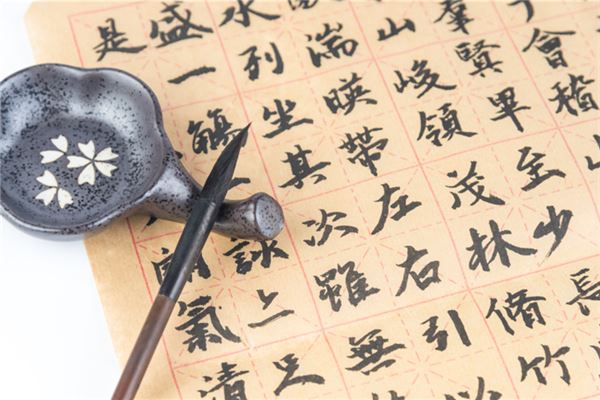 會稽山
羣賢畢至少長
山峻領茂林脩竹
湍暎帶左右引以
水列坐其次雖無
盛一觴詠上足
是朗氣清